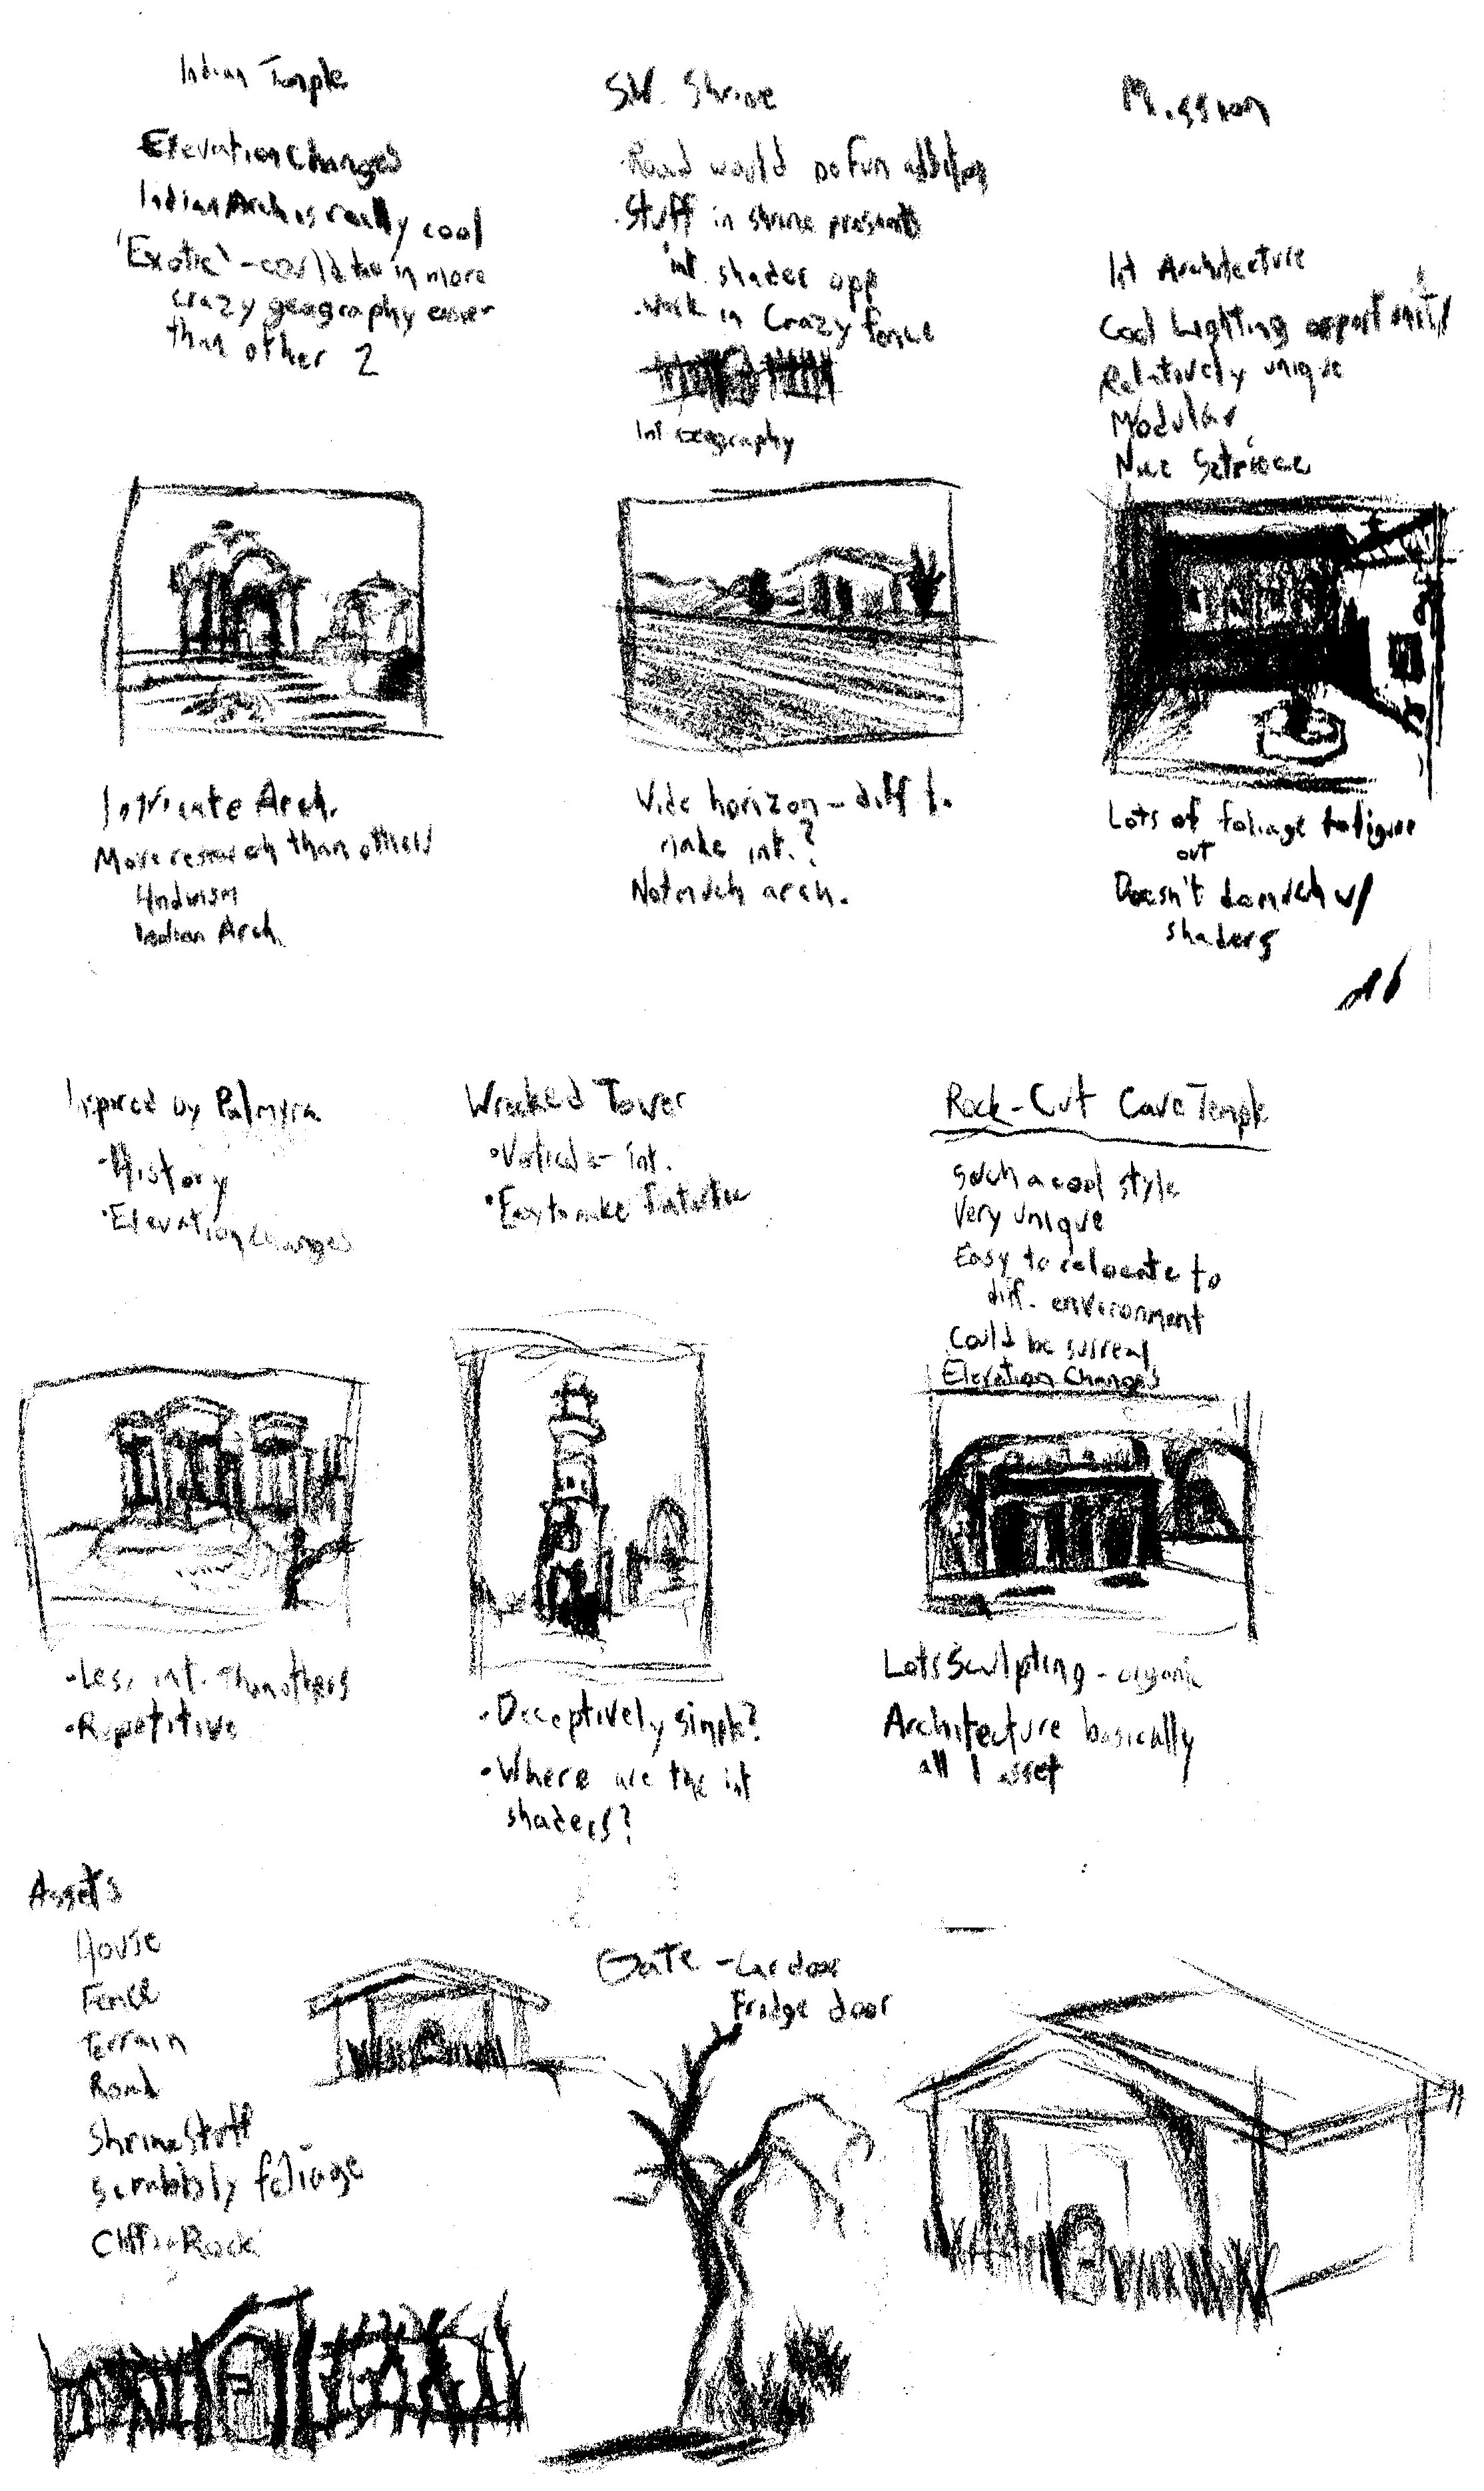 Indian Temple
Elevation Changes
Indian Arch is really cool
'Exotic' - could be in more
crazy geography easier
than other 2
Intricate Arch.
More research than others
Hinduism
Indian Arch
S.W. Shrine
Road would be fun addition
Stuff in shrine presents
int. shader opp
work in crazy fence
Int geography
Wide horizon - diff to
make int.?
Not much arch.
Mission
Int Architecture
Cool Lighting opportunity
Relatively unique
Modular
Nice Setpiece
Lots of foliage to figure
out
Doesn't do much w/
shaders
Inspired by Palmyra
• History
• Elevation changes
• Less int. than others
• Repetitive
Wrecked Tower
• Vertical = int.
• Easy to make
• Deceptively simple?
• Where are the int
shaders?
Rock-Cut Cave Temple
such a cool style
Very unique
Easy to relocate to
diff. environment
Could be surreal
Elevation Changes
Lots Sculpting - organic
Architecture basically
all 1 asset
Assets
House
Fence
Terrain
Road
Shrine Stuff
Scrubbly foliage
Cliffs + Rock
Gate - Car door
Fridge door